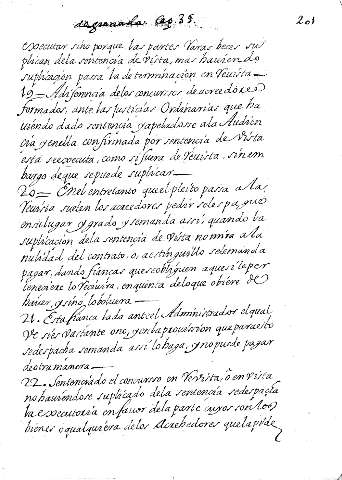 de granada Cap. 35. 201
executar sino porque las partes Varas beses sup
plican dela sentencia de Vista, mas haviendo
suplicacion passa la determinacion en Reuista
19. A diferencia delos concursos de acreedores
formados, ante las Justicias Ordinarias que ha
uiendo dado sentencia y apeladosse ala Audien
cia y en ella confirmada por sentencia de Vista
esta se executa, como si fuera de Reuista, sin em
bargo de que se puede suplicar
20. En el entretanto que el pleito passa a la
Reuista suelen los acreedores pedir seles pague
en su lugar y grado y se manda assi quando la
suplicacion dela sentencia de Vista no mira a la
nulidad del contrato, o, a estinguillo se le manda
pagar, dando fianças que se obliguen a que si la per
sona en Reuista, en quinta delo que obiere de
hauer, y sino lo boluera
21. Esta fiança la da ante el Administrador el qual,
Ve si es vastante o no, y en la prouission que para esto
se despacha se manda assi lo haga, y no puede pagar
de otra manera
22. Sentenciado el concurso en Revista, o en Vista
no hauiendose suplicado dela sentencia se despacha
la executoria en favor dela parte cuyos son los
bienes, o qualquiera delos Acrehedores que la pide